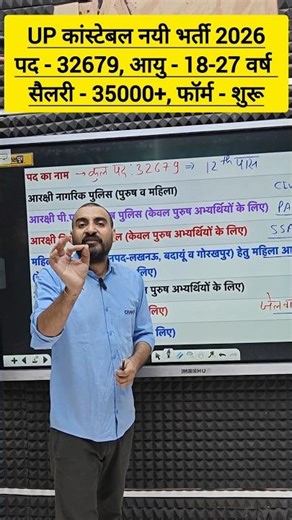 UP कांस्टेबल नयी भर्ती 2026
पद - 32679, आयु - 18-27 वर्ष
सैलरी - 35000+, फॉर्म - शुरू
पद का नाम → कुल पद: 32679 ⇒ 12th पास
आरक्षी नागरिक पुलिस (पुरुष व महिला)
आरक्षी पी. पुलिस (केवल पुरुष अभ्यर्थियों के लिए) PA
आरक्षी (केवल पुरुष अभ्यर्थियों के लिए) SSF
महि जनपद-लखनऊ, बदायूं व गोरखपुर) हेतु महिला आ
के लिए)
पुरुष अभ्यर्थियों के लिए)
के लिए) जेल वा
लिए)